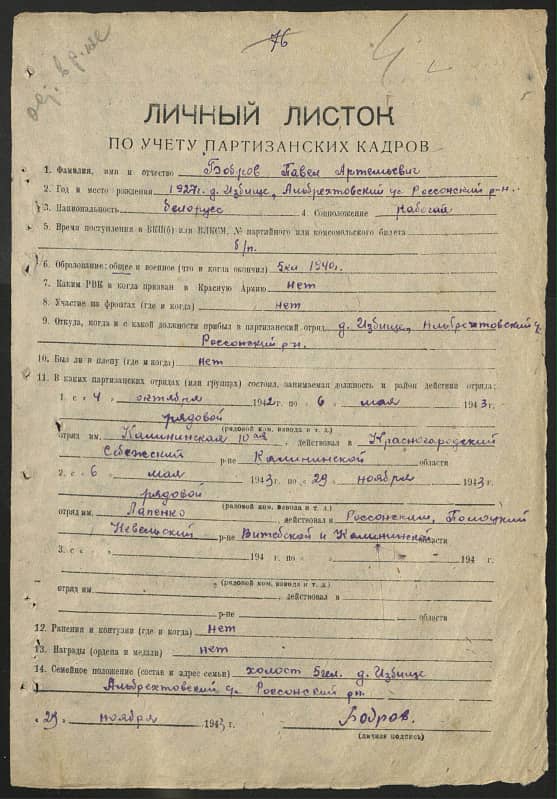 76
ЛИЧНЫЙ ЛИСТОК
ПО УЧЕТУ ПАРТИЗАНСКИХ КАДРОВ
1. Фамилия, имя и отчество Бобров Павел Артемьевич
2. Год и место рождения 1927г. д. Избище, Альбрехтовский Россонский р-н.
3. Национальность белорусс 4. Соцположение рабочий
5. Время поступления в ВКП(б) или ВЛКСМ, № партийного или комсомольского билета
б/п.
6. Образование: общее и военное (что и когда окончил) 5кл 1940г.
7. Каким РВК и когда призван в Красную Армию нет
8. Участие на фронтах (где и когда) нет
9. Откуда, когда и с какой должности прибыл в партизанский отряд д. Избище, Альбрехтовский
Россонский р-н.
10. Был ли в плену (где и когда) нет
11. В каких партизанских отрядах (или группах) состоял, занимаемая должность и район действия отряда:
1. с „4 „ октября 1942 г. по „6 „ мая 1943 г.
рядовой
(рядовой ком. взвода и т. д.)
отряд им. Калининская 10ая, действовал в Красногородский
Себежский р-не Калининской области
2. с „6 „ мая 1943 г. по „29 „ ноября 1943 г.
рядовой
(рядовой ком. взвода и т. д.)
отряд им. Лапенко, действовал в Россонский, Полоцкий
Невельский р-не Витебской и Калининской области
3. с „ „ 194 г. по „ „ 194 г.
(рядовой ком. взвода и т. д.)
отряд им. , действовал в
р-не области
12. Ранения и контузии (где и когда) нет
13. Награды (ордена и медали) нет
14. Семейное положение (состав и адрес семьи) холост 5чел. д. Избище
Альбрехтовский Россонский р-н
„29 „ ноября 1943 г. Бобров.
(личная подпись)